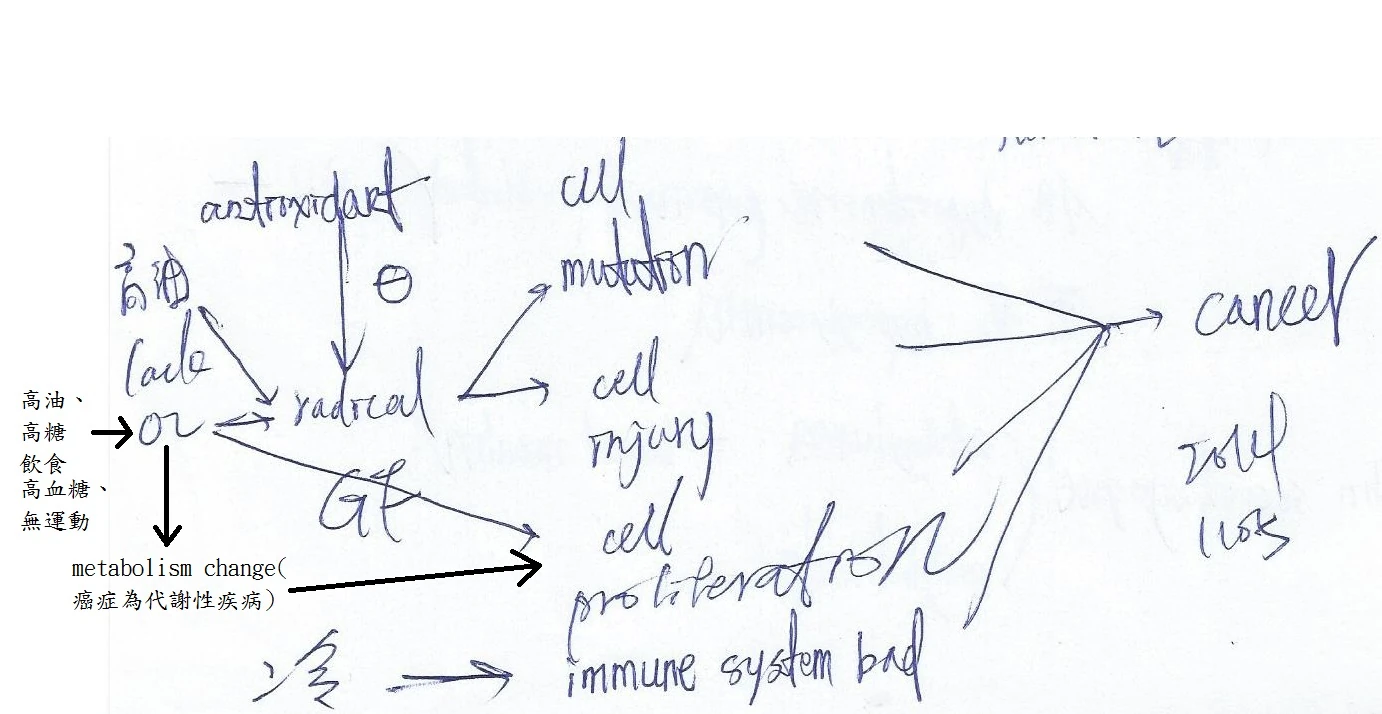 antioxidant
高油
lack
O2
radical
⊖
GF
cell
mutation
cell
injury
cell
proliferation
immune system bad
冷
cancer
高油、
高糖
飲食
高血糖、
無運動
metabolism change(
癌症為代謝性疾病)